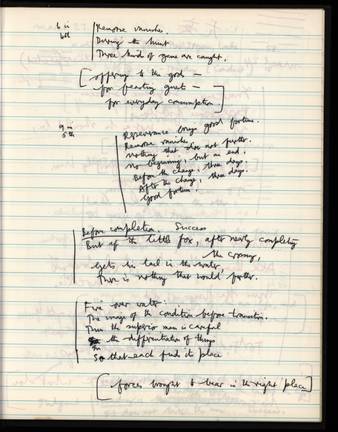 6 in 4th
Remorse vanishes.
During the hunt
Three kinds of game are caught.
[offering to the gods —
for feasting guests —
for everyday consumption]
9 in 5th
Perseverance brings good fortune.
Remorse vanishes.
Nothing that does not further.
No beginning, but an end.
Before the change, three days.
After the change, three days.
Good fortune.
Before completion. Success
But if the little fox, after nearly completing
the crossing,
Gets his tail in the water,
There is nothing that would further.
Fire over water:
The image of the condition before transition.
Thus the superior man is careful
in the differentiation of things
So that each finds its place
[forces brought to bear in the right place]